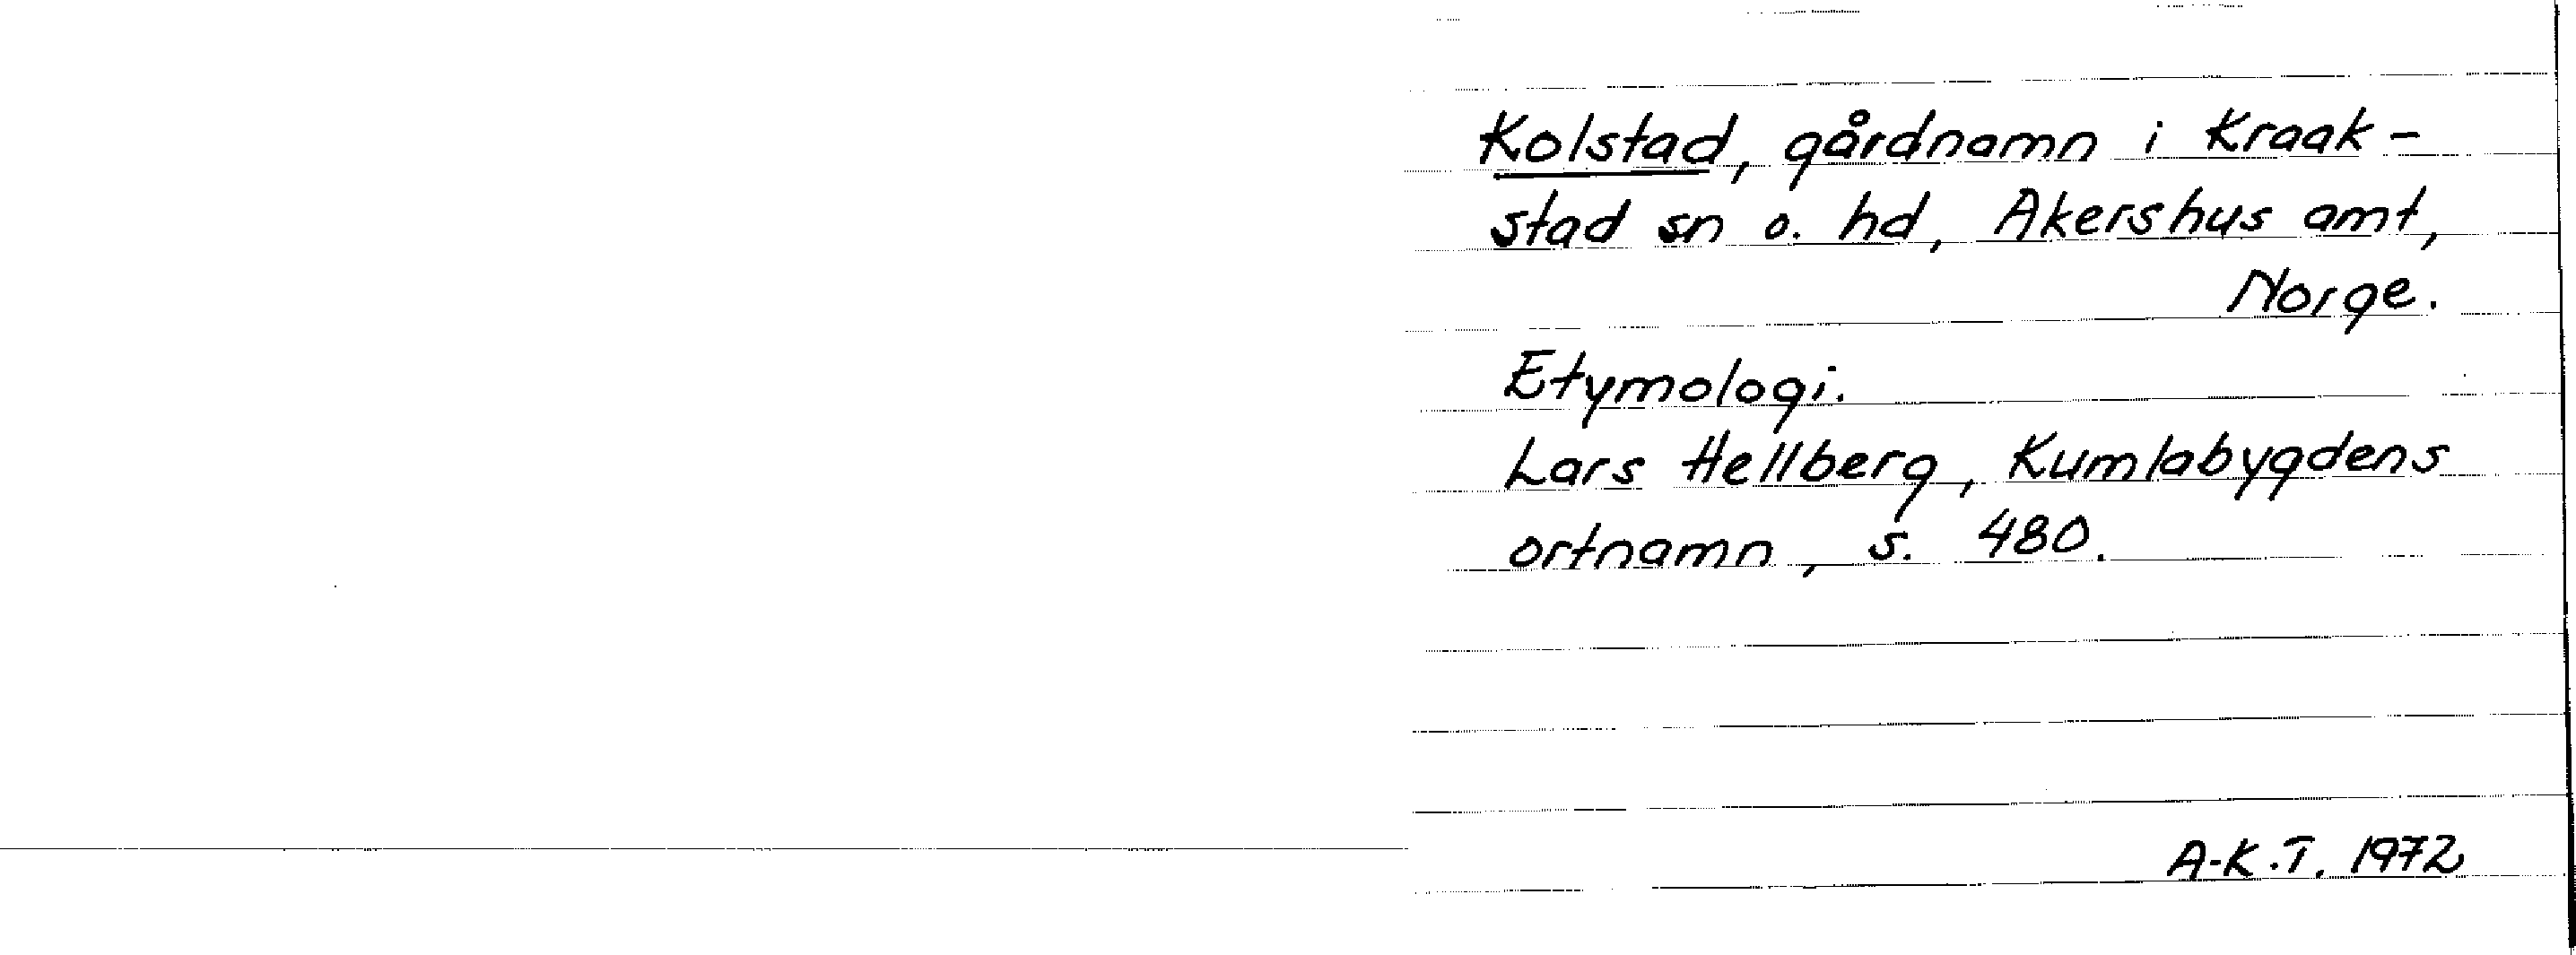 Kolstad, gårdnamn i Kraak-
stad sn o. hd, Akershus amt,
Norge.
Etymologi.
Lars Hellberg, Kumlabygdens
ortnamn, s. 480.
A-K.T. 1972